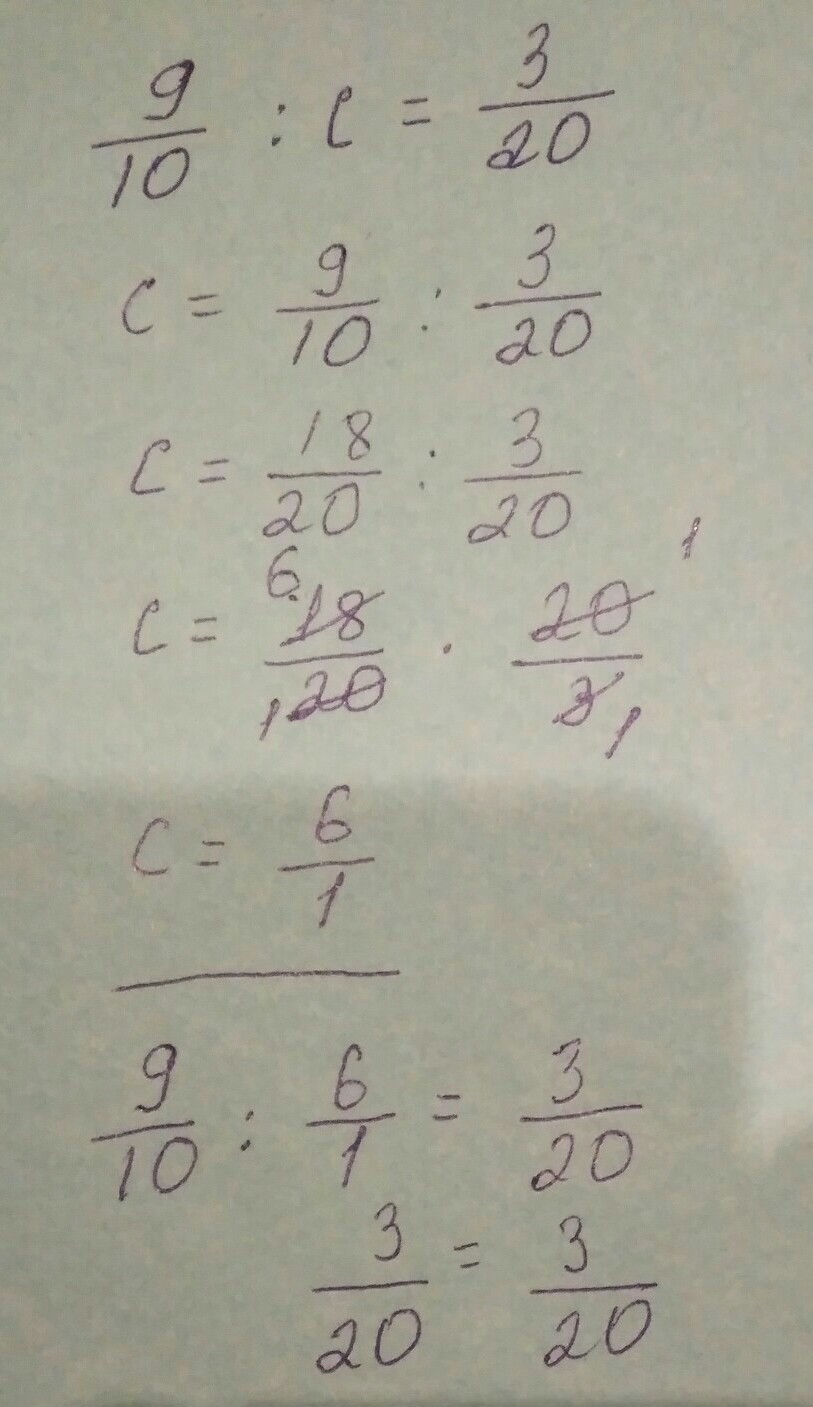 9/10 : c = 3/20
c = 9/10 : 3/20
c = 18/20 : 3/20
c = 6 18/1 20 · 20 1/3 1
c = 6/1
9/10 : 6/1 = 3/20
3/20 = 3/20